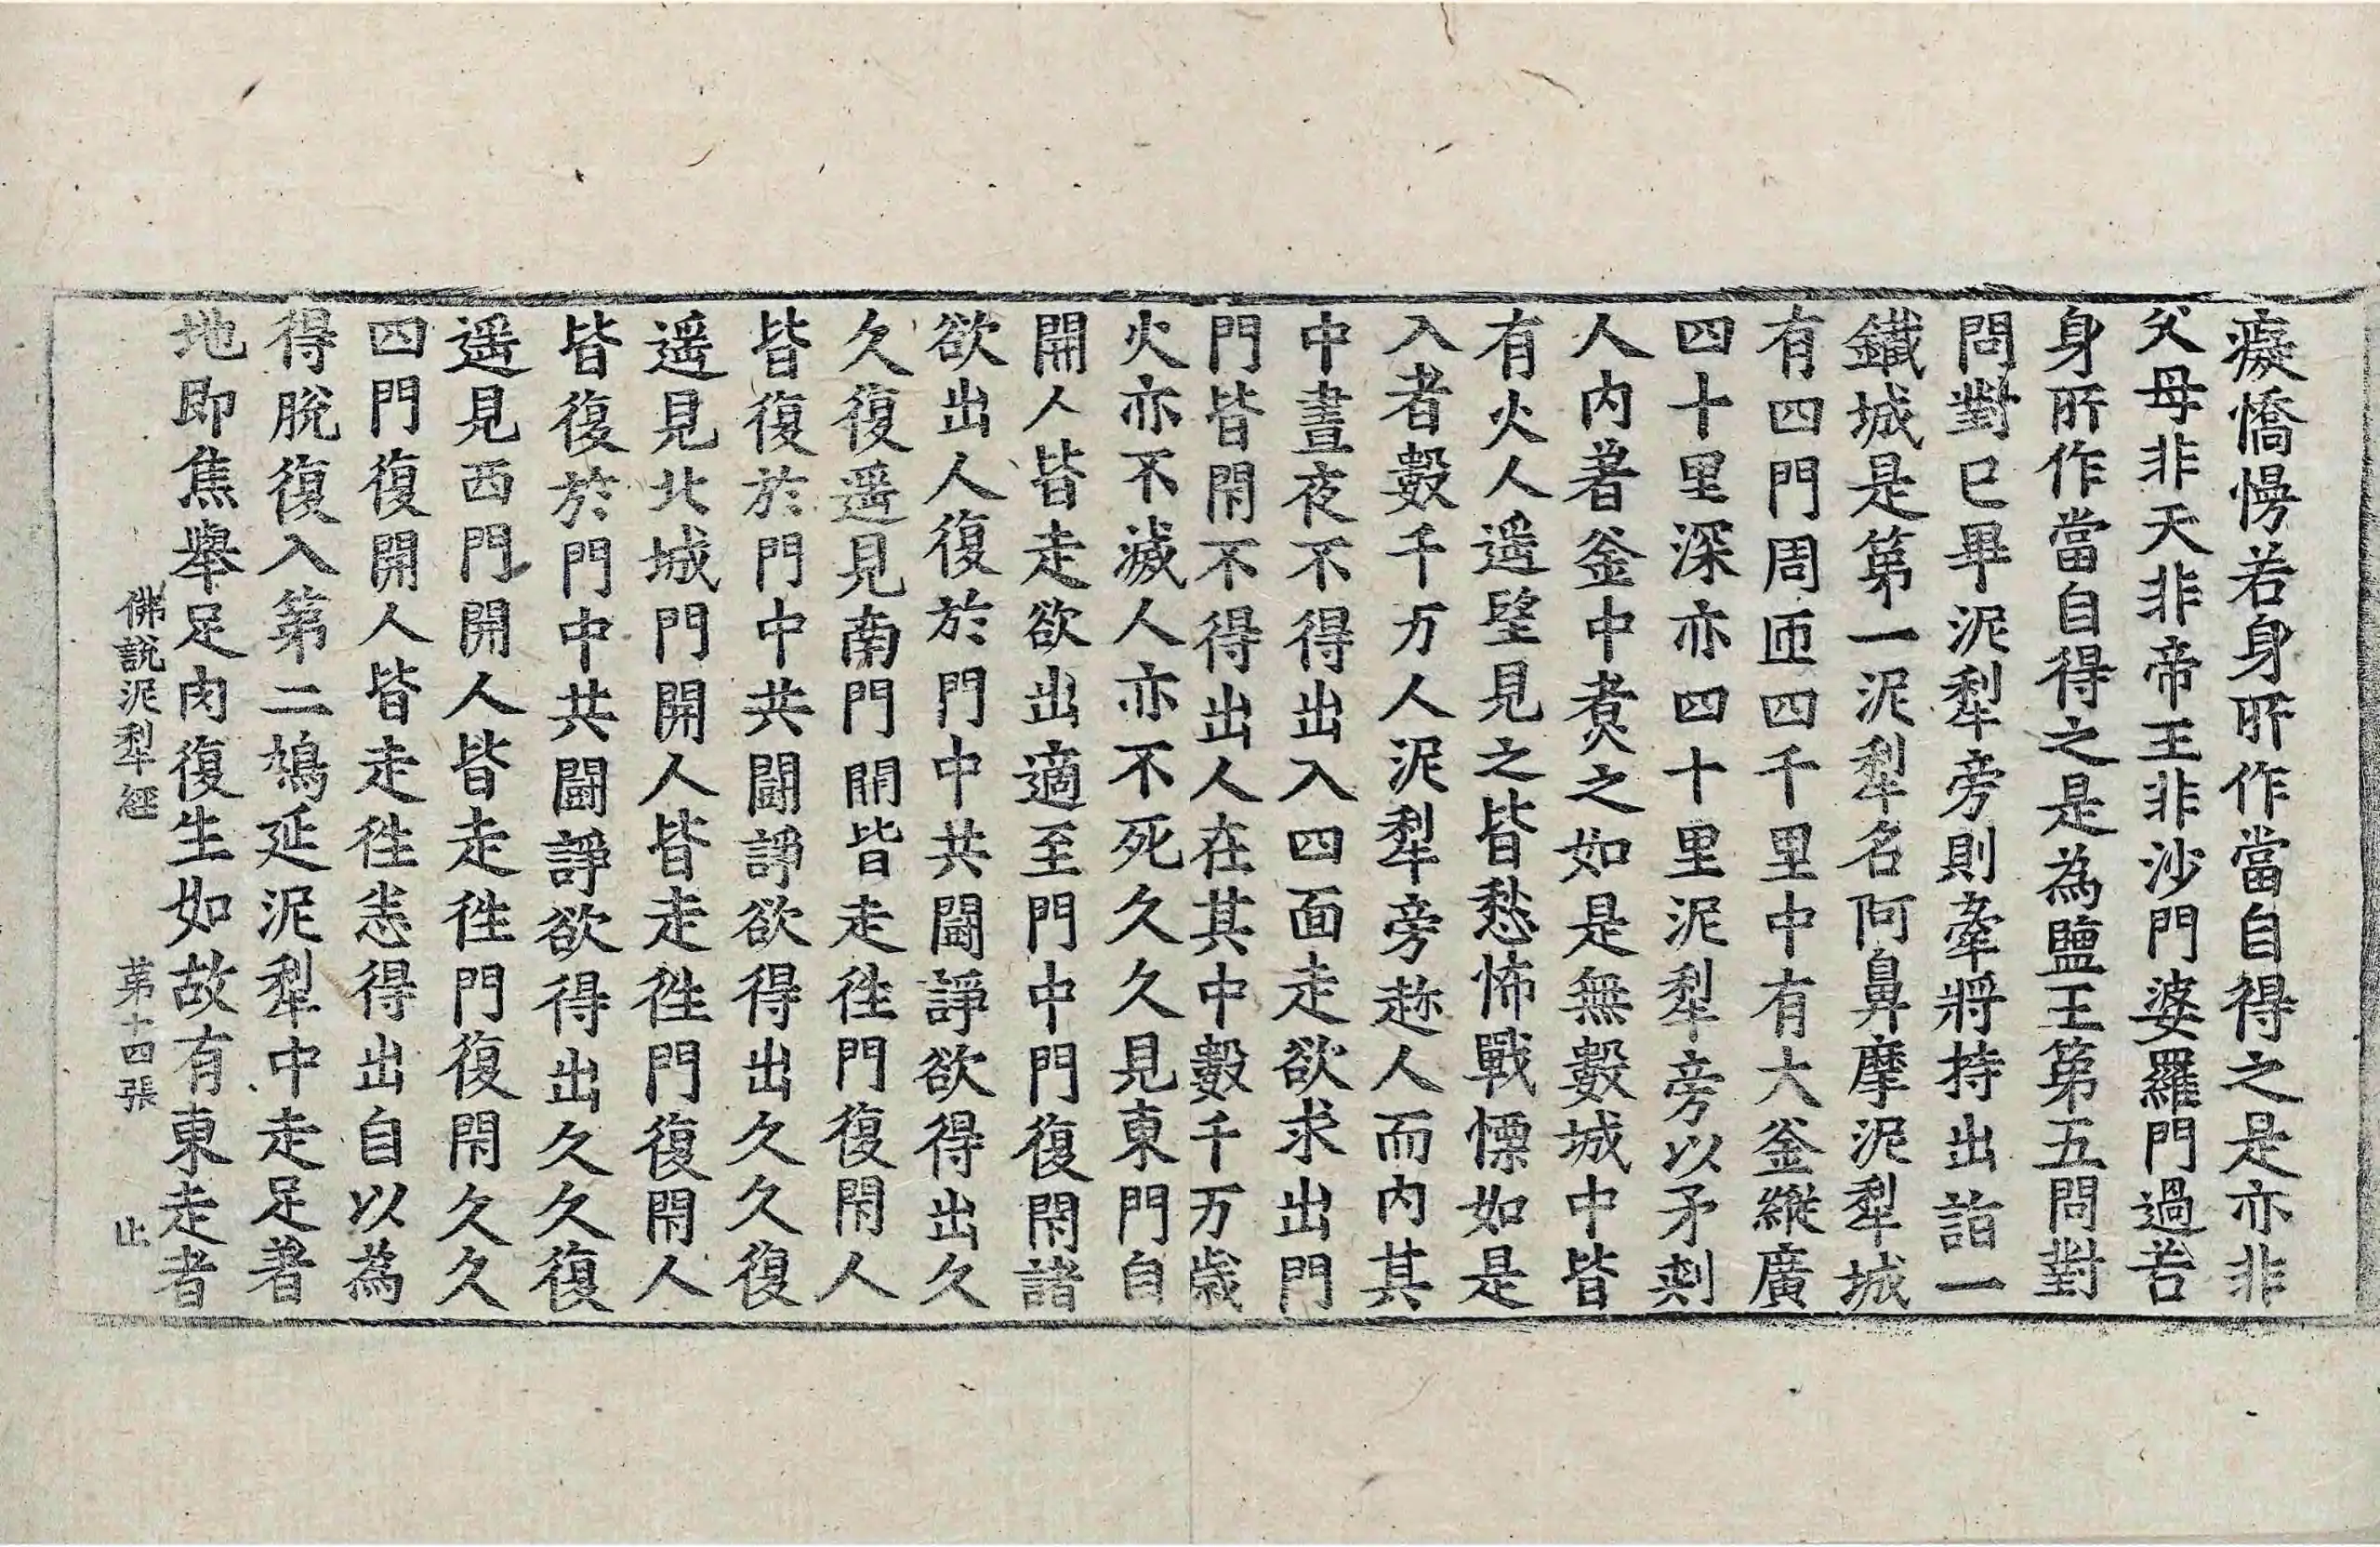 癡憍慢若身所作當自得之是亦非
父母非天非帝王非沙門婆羅門過若
身所作當自得之是為鹽王第五問對
問對已畢泥犁旁則牽將持出詣一
鐵城是第一泥犁名阿鼻摩泥犁城
有四門周匝四千里中有大釜縱廣
四十里深亦四十里泥犁旁以矛刾
人內著釜中煑之如是無數城中皆
有火人遥望見之皆愁怖戰慄如是
入者數千万人泥犁旁趂人而內其
中晝夜不得出入四面走欲求出門
門皆閇不得出人在其中數千万歲
火亦不滅人亦不死久久見東門自
開人皆走欲出適至門中門復閇諸
欲出人復於門中共鬪諍欲得出久
久復遥見南門開皆走往門復閇人
皆復於門中共鬪諍欲得出久久復
遥見北城門開人皆走往門復閇人
皆復於門中共鬪諍欲得出久久復
遥見西門開人皆走往門復閇久久
四門復開人皆走往恚得出自以為
得脫復入第二鳩延泥犁中走足著
地即焦舉足肉復生如故有東走者
佛說泥犁經 第十四張 止